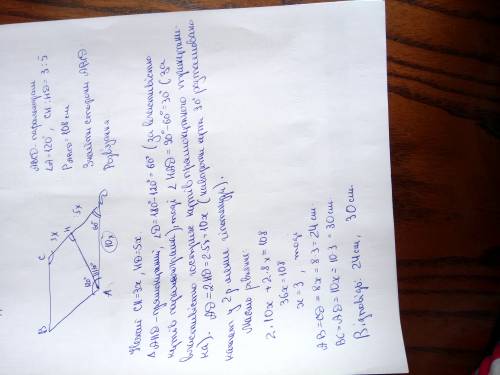 ABCD - паралелограм
∠A=120°, CH:HD = 3:5
P ABCD = 108 см
Знайти сторони ABCD
Розв'язання
B
C
3x
H
5x
D
60°
10x
A
Нехай CH=3x, HD=5x.
Δ AHD - прямокутний, ∠D=180°-120°=60° (за властивістю
кутів паралелограма), тоді ∠HAD = 90°-60°=30° (за
властивістю гострих кутів прямокутного трикутни-
ка). AD=2HD=2·5x=10x (навпроти кута 30° розташовано
катет у 2 р. менше гіпотенузи).
Маємо рівняння:
2·10x+2·8x=108
36x=108
x=3, тоді
AB=CD=8x=8·3=24 см
BC=AD=10x=10·3=30 см
Відповідь: 24 см, 30 см.